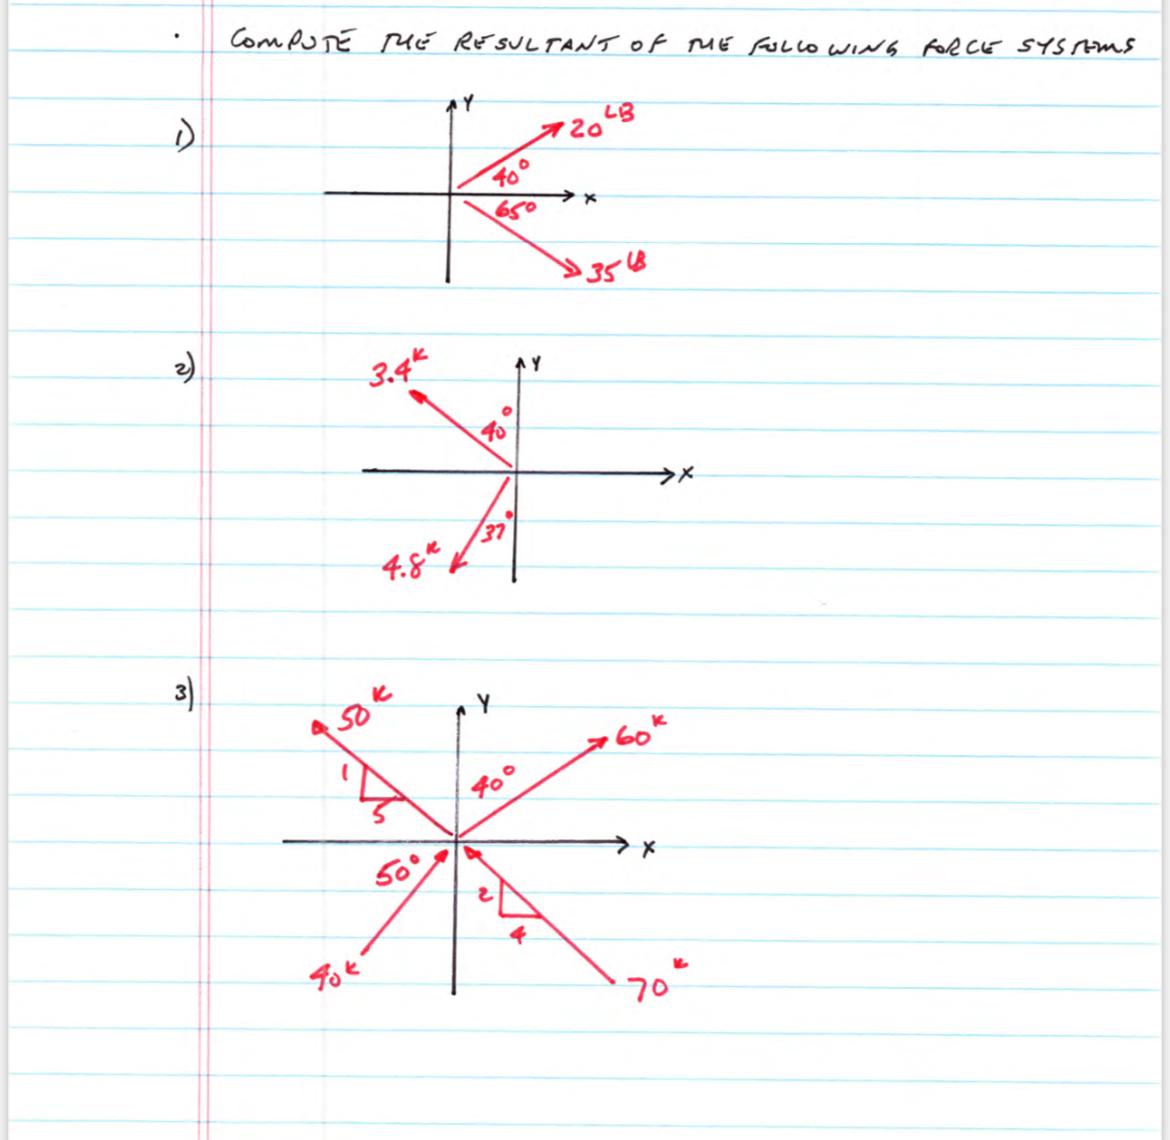 . COMPUTE THE RESULTANT OF THE FOLLOWING FORCE SYSTEMS
1)
Y
20 LB
40°
X
65°
35 LB
2)
3.4 K
Y
40°
X
37°
4.8 K
3)
50 K
Y
60 K
1
40°
5
X
50°
2
4
40 K
70 K